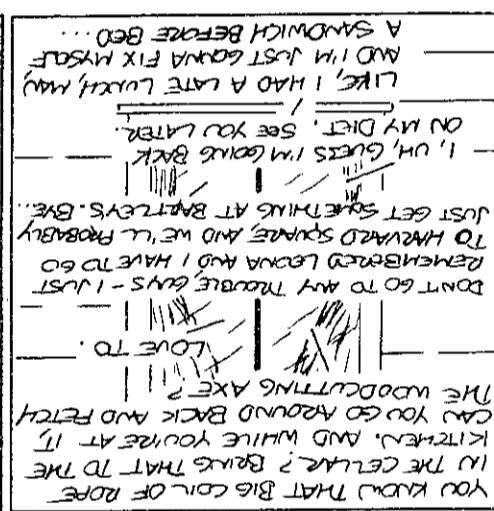 YOU KNOW THAT BIG COIL OF ROPE
IN THE CELLAR? BRING THAT TO THE
KITCHEN. AND WHILE YOU'RE AT IT,
CAN YOU GO AROUND BACK AND FETCH
THE WOODCUTTING AXE?
LOVE TO.
DON'T GO TO ANY TROUBLE GUYS - I JUST
REMEMBERED LEONA AND I HAVE TO GO
TO HARVARD SQUARE, AND WE'LL PROBABLY
JUST GET SOMETHING AT BARTLEY'S. BYE...
I, UH, GUESS I'M GOING BACK
ON MY DIET. SEE YOU LATER.
LIKE, I HAD A LATE LUNCH, MAN,
AND I'M JUST GONNA FIX MYSELF
A SANDWICH BEFORE BED ...